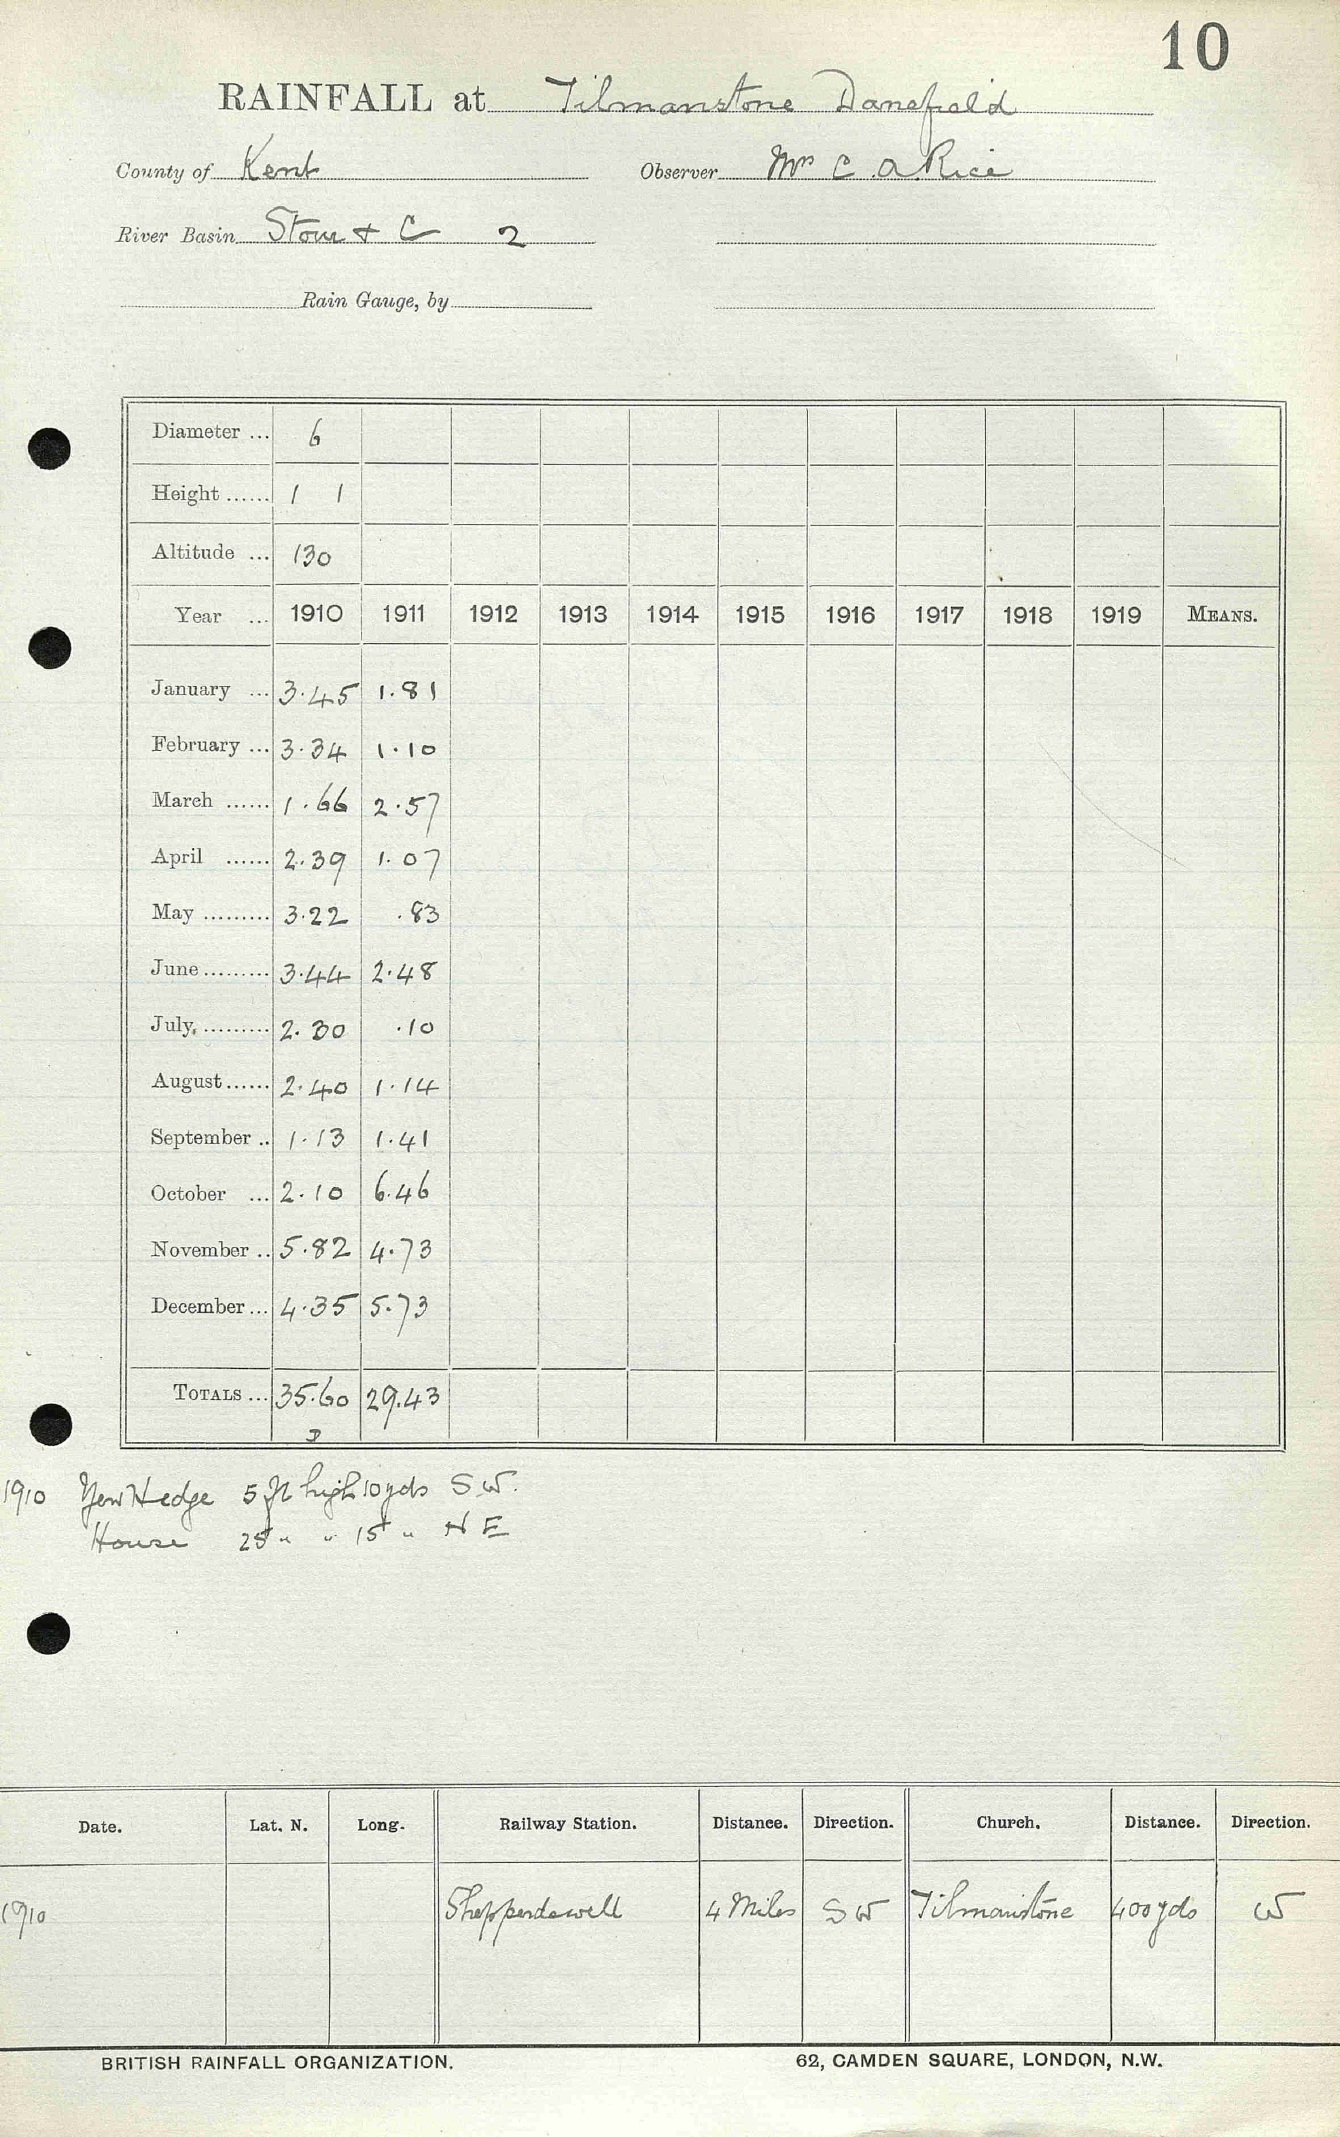 10
RAINFALL at Tilmanstone Danefield
County of Kent Observer Mrs C. A. Rice
River Basin Stour & C 2
Rain Gauge, by
Diameter ... 6
Height ...... 1 1
Altitude ... 130
Year ... 1910 1911 1912 1913 1914 1915 1916 1917 1918 1919 MEANS.
January ... 3.45 1.81
February ... 3.34 1.10
March ...... 1.66 2.57
April ...... 2.39 1.07
May ......... 3.22 .83
June ......... 3.44 2.48
July. ......... 2.30 .10
August ...... 2.40 1.14
September .. 1.13 1.41
October ... 2.10 6.46
November .. 5.82 4.73
December ... 4.35 5.73
TOTALS ... 35.60 29.43
1910 Yew Hedge 5 ft high 10 yds S.W.
House 25 " " 15 " N E
Date. Lat. N. Long. Railway Station. Distance. Direction. Church. Distance. Direction.
1910 Shepperdswell 4 Miles S W Tilmanstone 400 yds W
BRITISH RAINFALL ORGANIZATION. 62, CAMDEN SQUARE, LONDON, N.W.